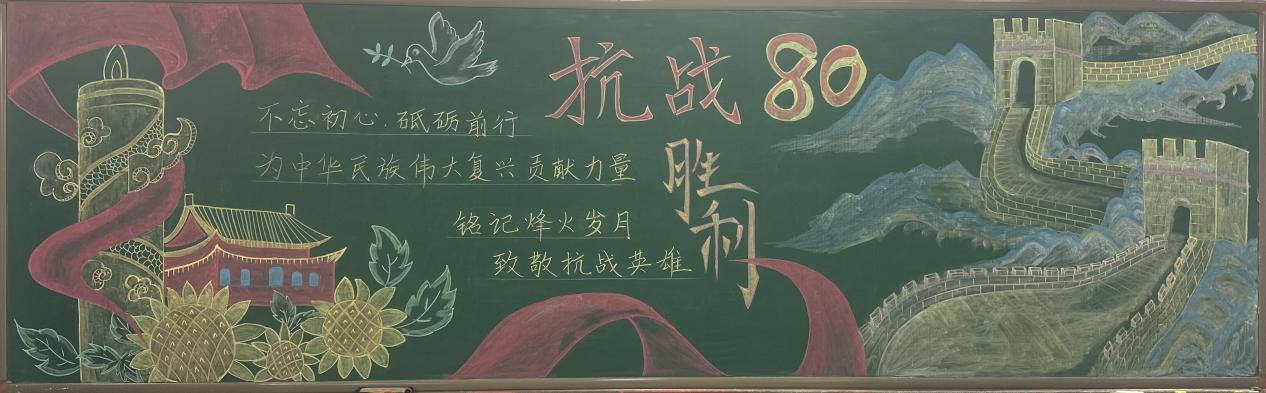 抗战80
胜利
不忘初心.砥砺前行
为中华民族伟大复兴贡献力量
铭记烽火岁月
致敬抗战英雄